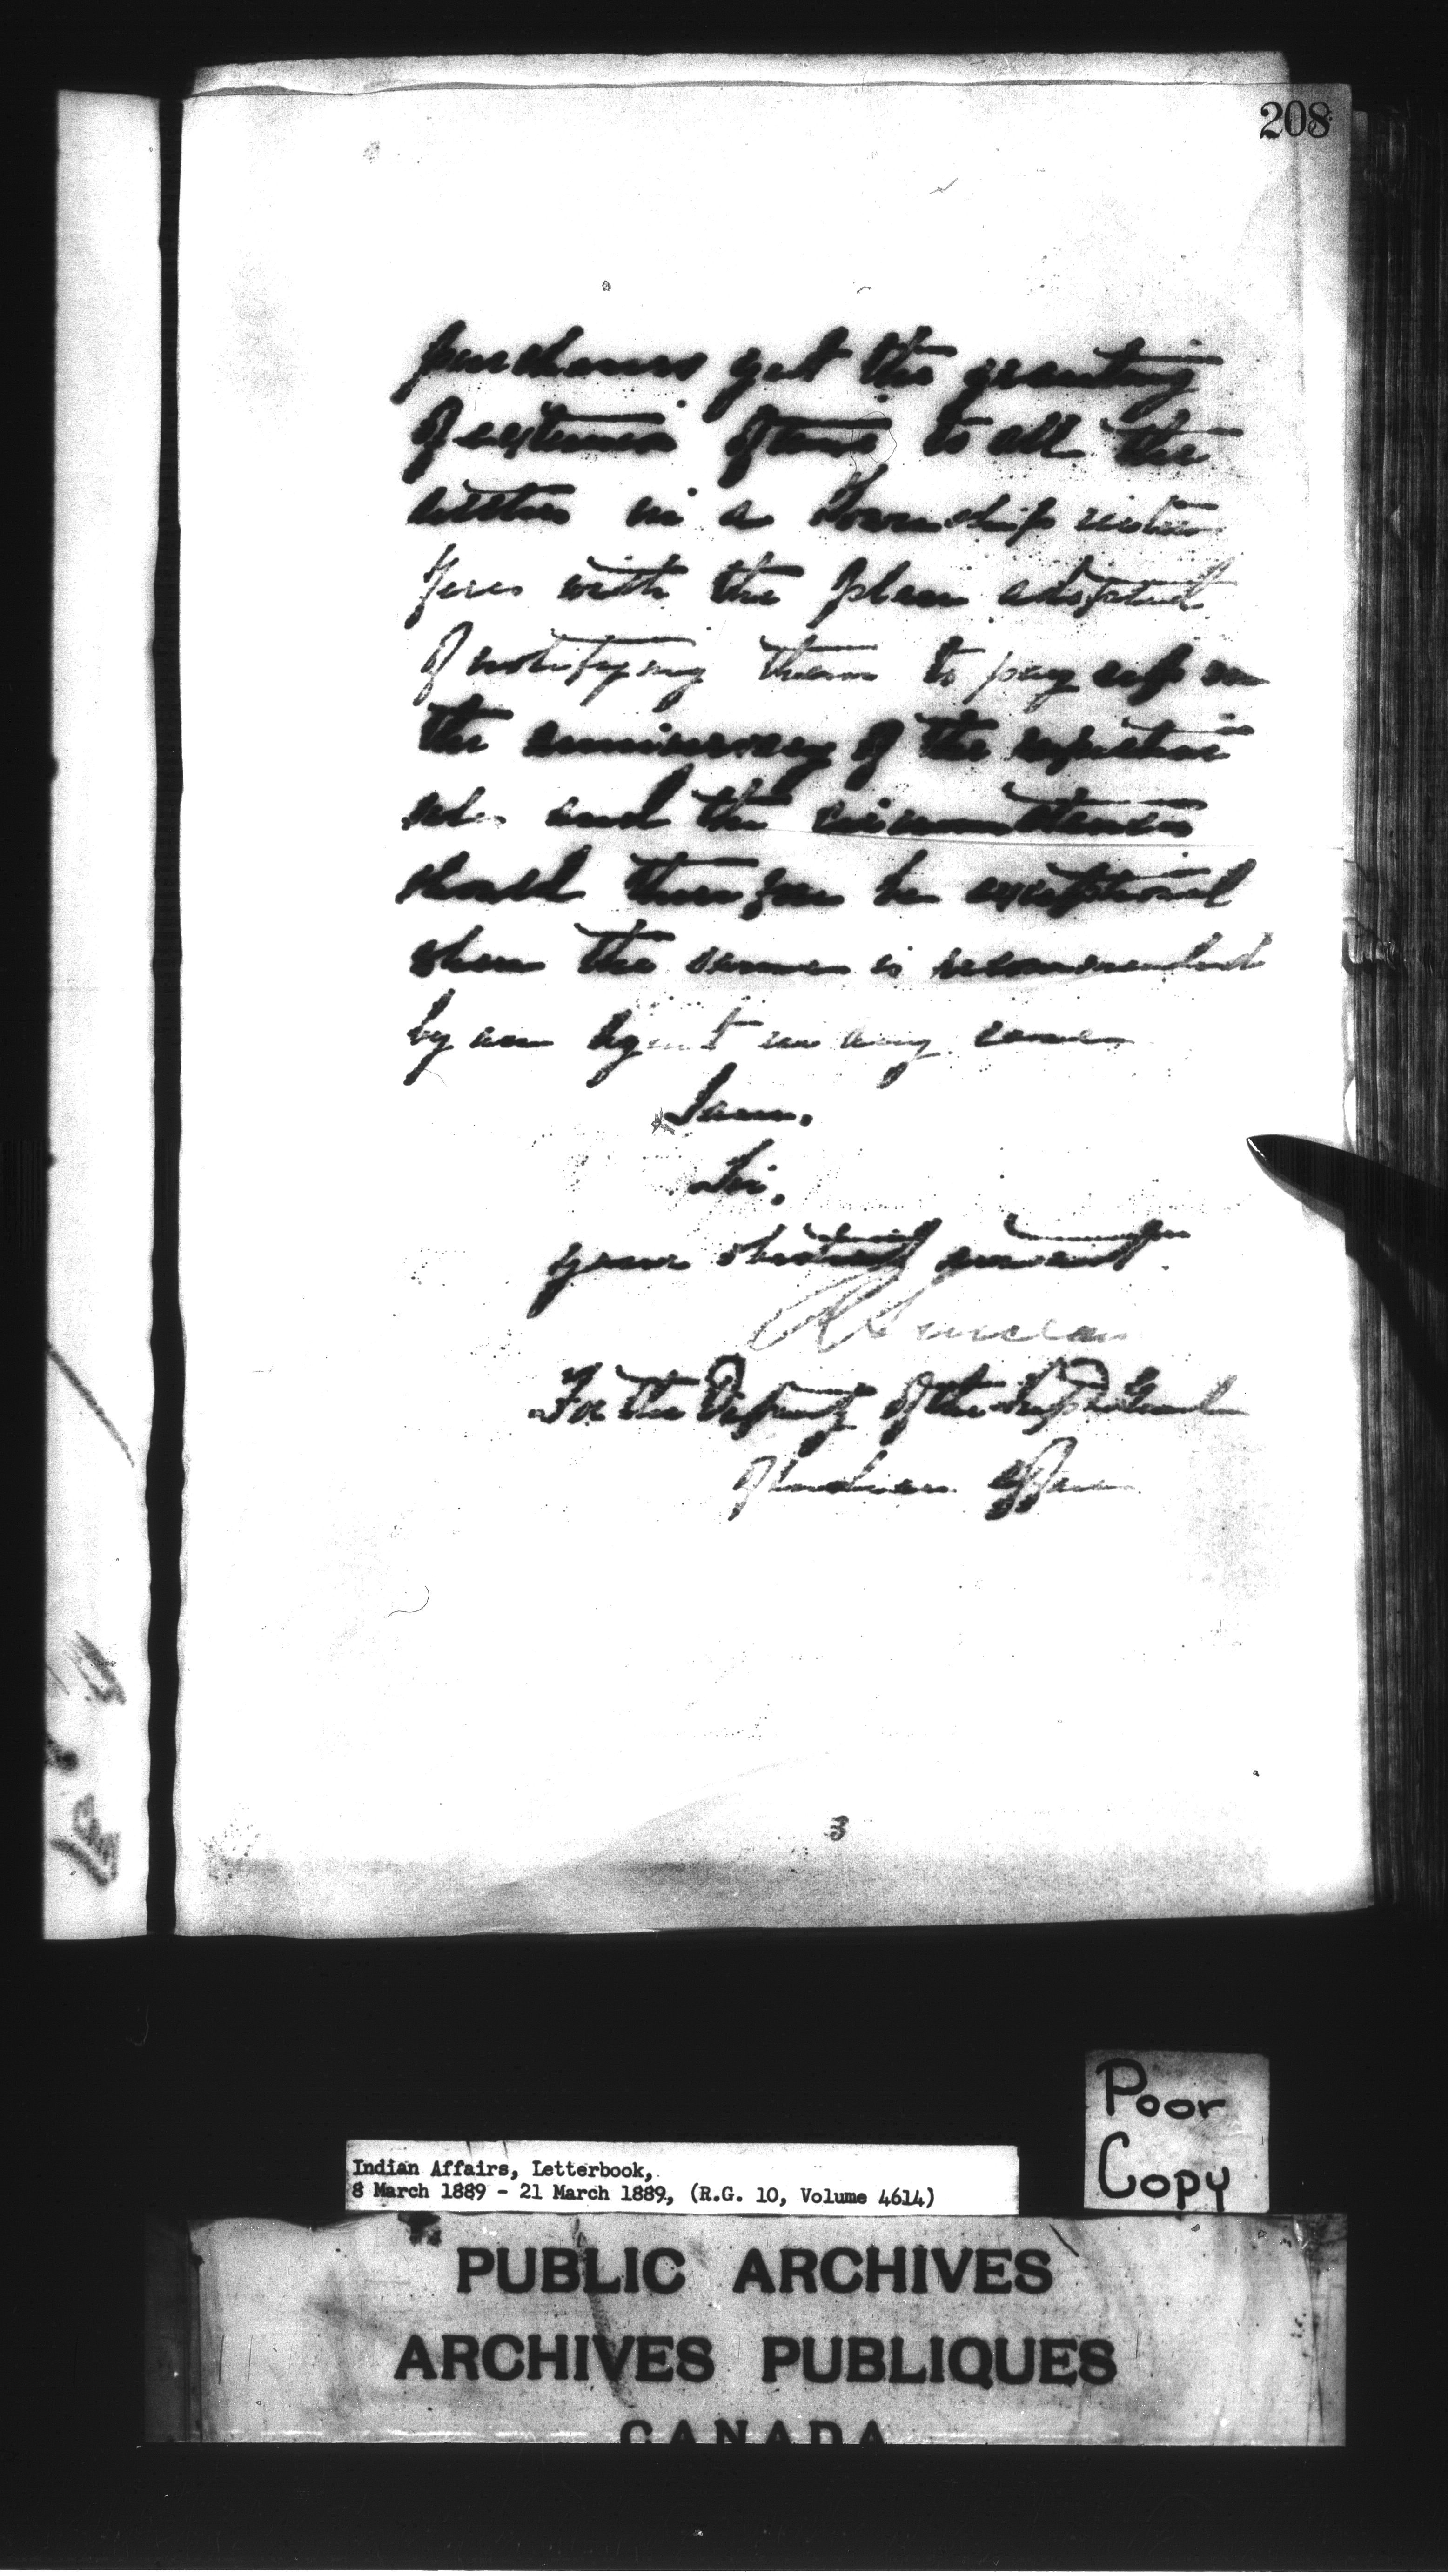 208
purchasers yet the granting
of extension of time to all the
settlers in a Township inter
feres with the plan adopted
of notifying them to pay up on
the anniversary of the respective
sales and the circumstances
should therefore be exceptional
when the same is recommended
by an Agent in any case
I am,
Sir,
your obedient servant
R Sinclair
For the Deputy of the Supt General
of Indian Affairs
3
Poor
Copy
Indian Affairs, Letterbook,
8 March 1889 - 21 March 1889, (R.G. 10, Volume 4614)
PUBLIC ARCHIVES
ARCHIVES PUBLIQUES
CANADA